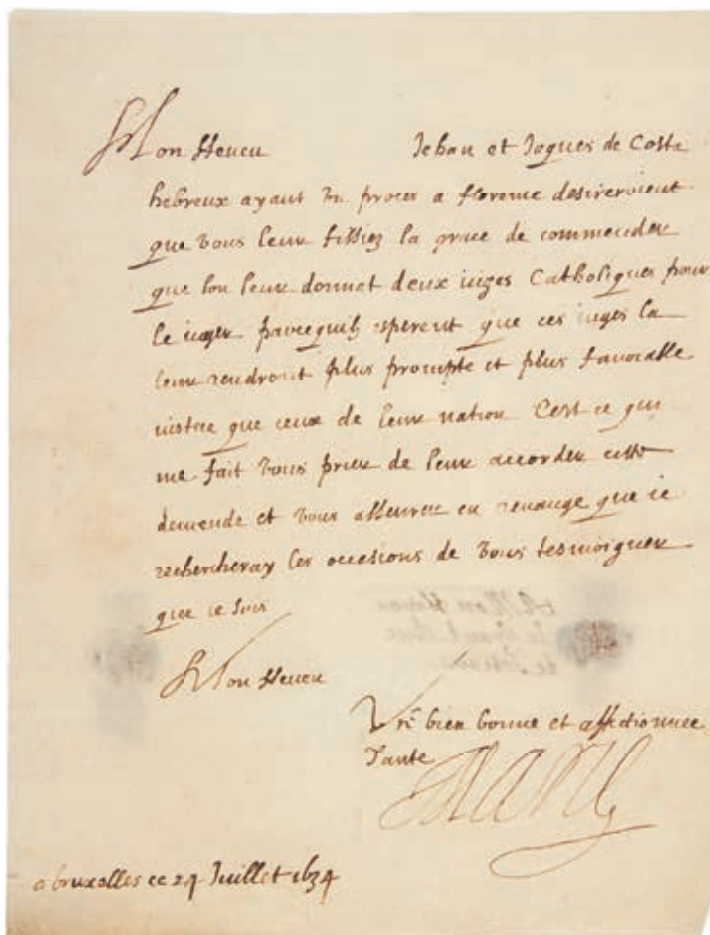 Mon Neveu Jehan et Jaques de Costa
hebreux ayant un proces a florence desireroient
que vous leur fissiez la grace de commender
que lon leur donnat deux iuges Catholiques pour
le iuger parcequilz esperent que ces iuges la
leur rendront plus prompte et plus favorable
iustice que ceux de leur nation Cest ce qui
me fait vous prier de leur accorder cette
demende et vous asseurer en revange que ie
rechercheray les occasions de vous tesmoigner
que ie suis
Mon Neveu
Vre bien bonne et affectionnee
Tante
Marie
a bruxelles ce 24 Juillet 1634